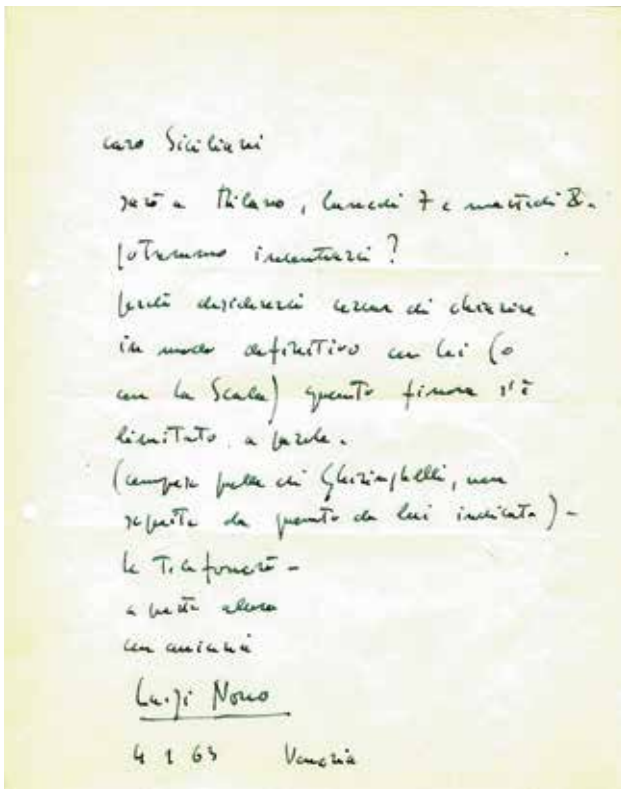 caro Siciliani
sarò a Milano, lunedì 7 e martedì 8.
potremmo incontrarci?
perché desidererei cercar di chiarire
in modo definitivo con lei (o
con la Scala) quanto finora s'è
limitato a parole.
(comprese quelle di Ghiringhelli, non
seguite da quanto da lui indicato) -
le telefonerò -
a presto allora
con amicizia
Luigi Nono
4 1 63 Venezia